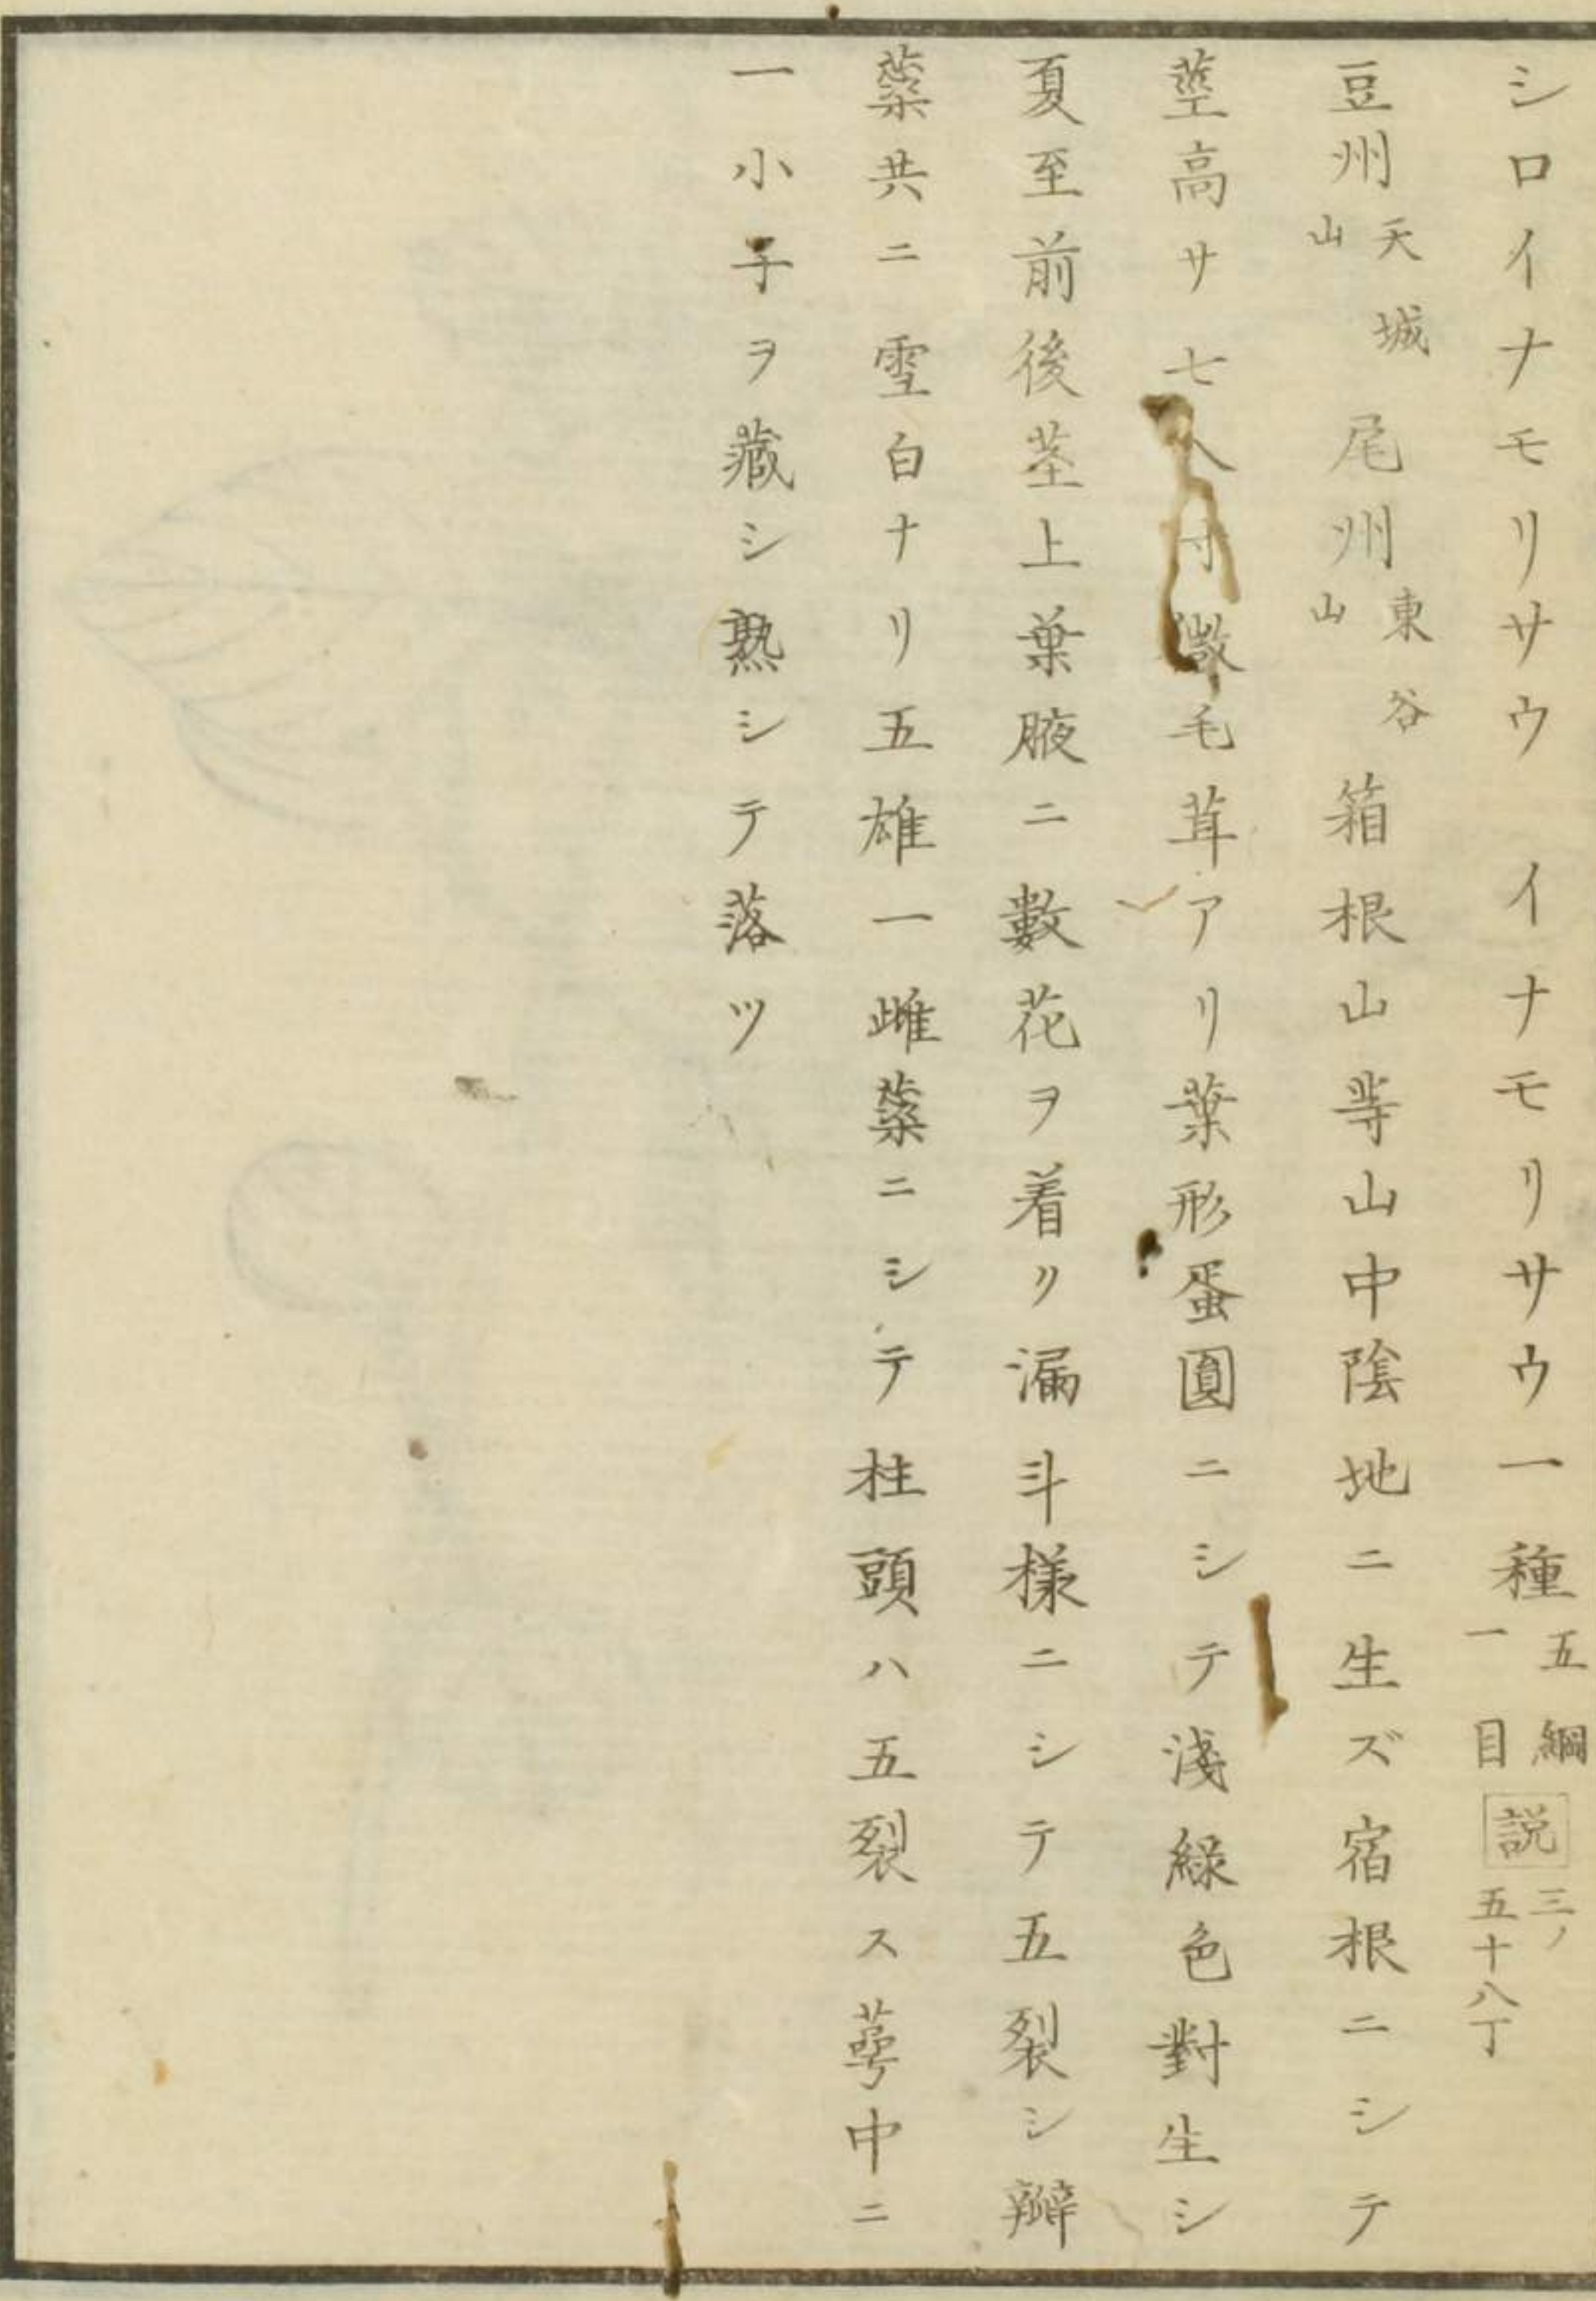 シロイナモリサウ　イナモリサウ一種 五綱一目 説 三ノ五十八丁
豆州天城山　尾州東谷山　箱根山等山中陰地ニ生ズ宿根ニシテ
莖高サ七八寸微毛茸アリ葉形蛋圓ニシテ淺緑色對生シ
夏至前後茎上葉腋ニ數花ヲ着ク漏斗様ニシテ五裂シ瓣
蘂共ニ雪白ナリ五雄一雌蘂ニシテ柱頭ハ五裂ス萼中ニ
一小子ヲ蔵シ熟シテ落ツ